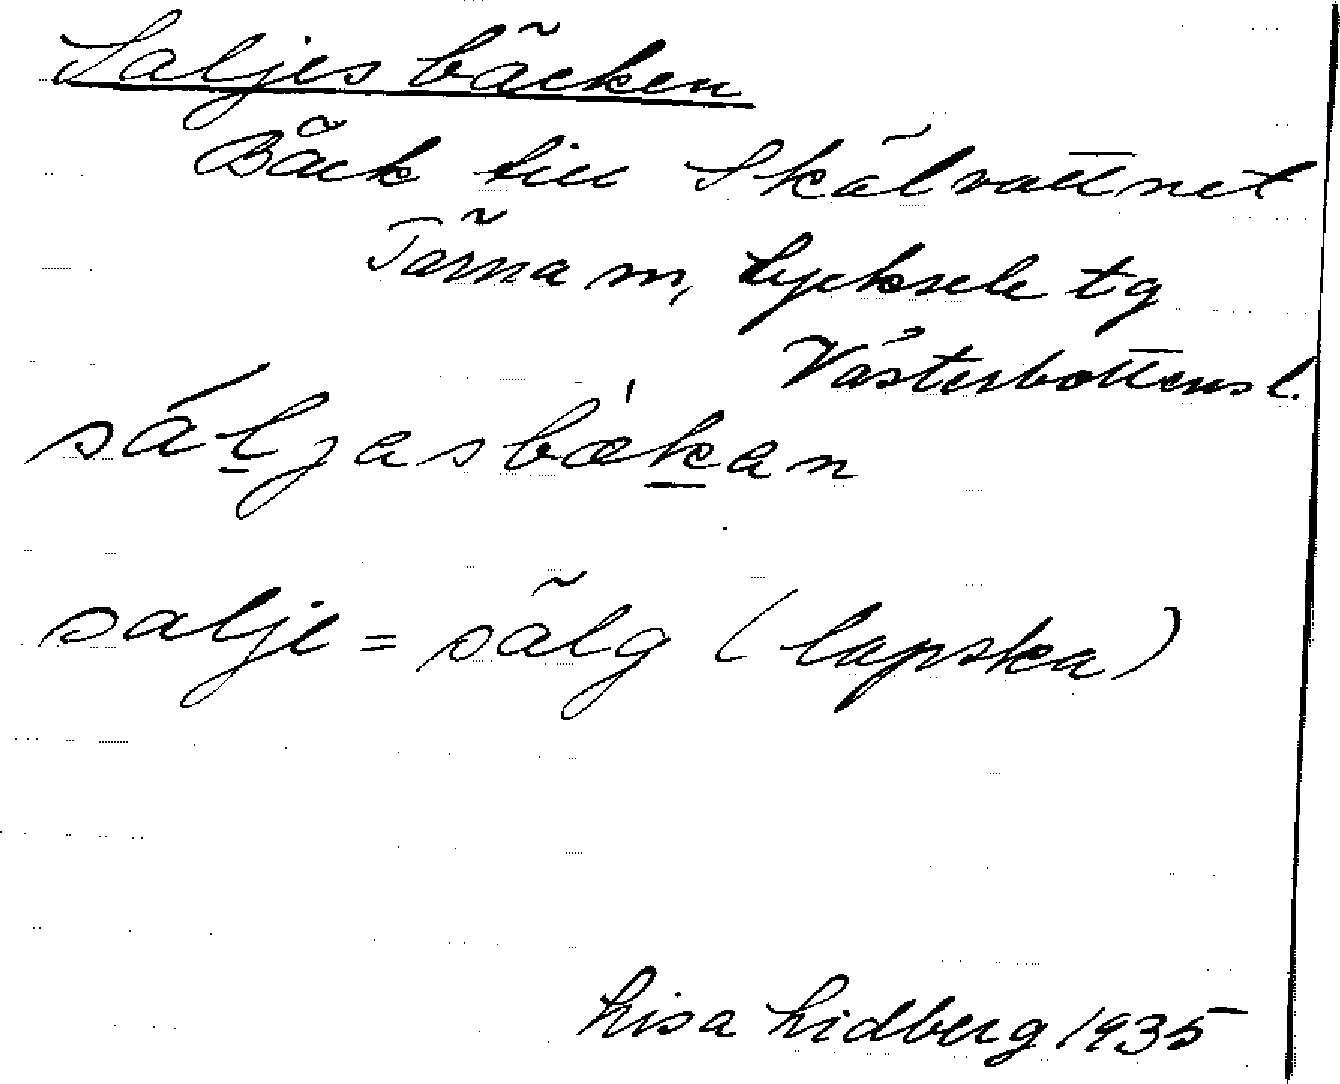 Saljesbäcken
Bäck till Skälvattnet
Tärna sn, Lycksele tg
Västerbottens l.
sáḻjasbæ̀ḵan
salje = sälg (lapska)
Lisa Lidberg 1935